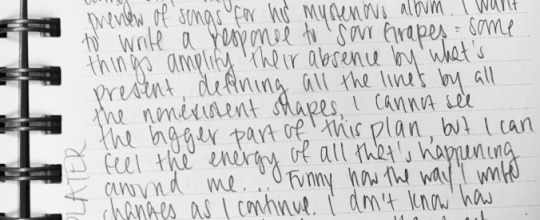 preview of songs for his mysterious album. I want
to write a response to Sour Grapes = some
things amplify their absence by what's
present defining all the lines by all
the nonexistent shapes. I cannot see
the bigger part of this plan, but I can
feel the energy of all that's happening
around me... Funny how the way I write
changes as I continue. I don't know how
LATER